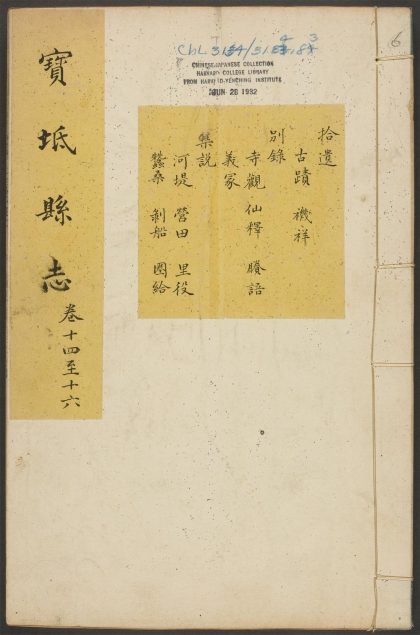 寶坻縣志
卷十四至十六
拾遺
古蹟 禨祥
別錄
寺觀 仙釋 賸語
義冢
集説
河堤 營田 里役
蠶桑 剝船 圈給
CHINESE-JAPANESE COLLECTION
HARVARD COLLEGE LIBRARY
FROM HARVARD-YENCHING INSTITUTE
JUN 26 1932
6